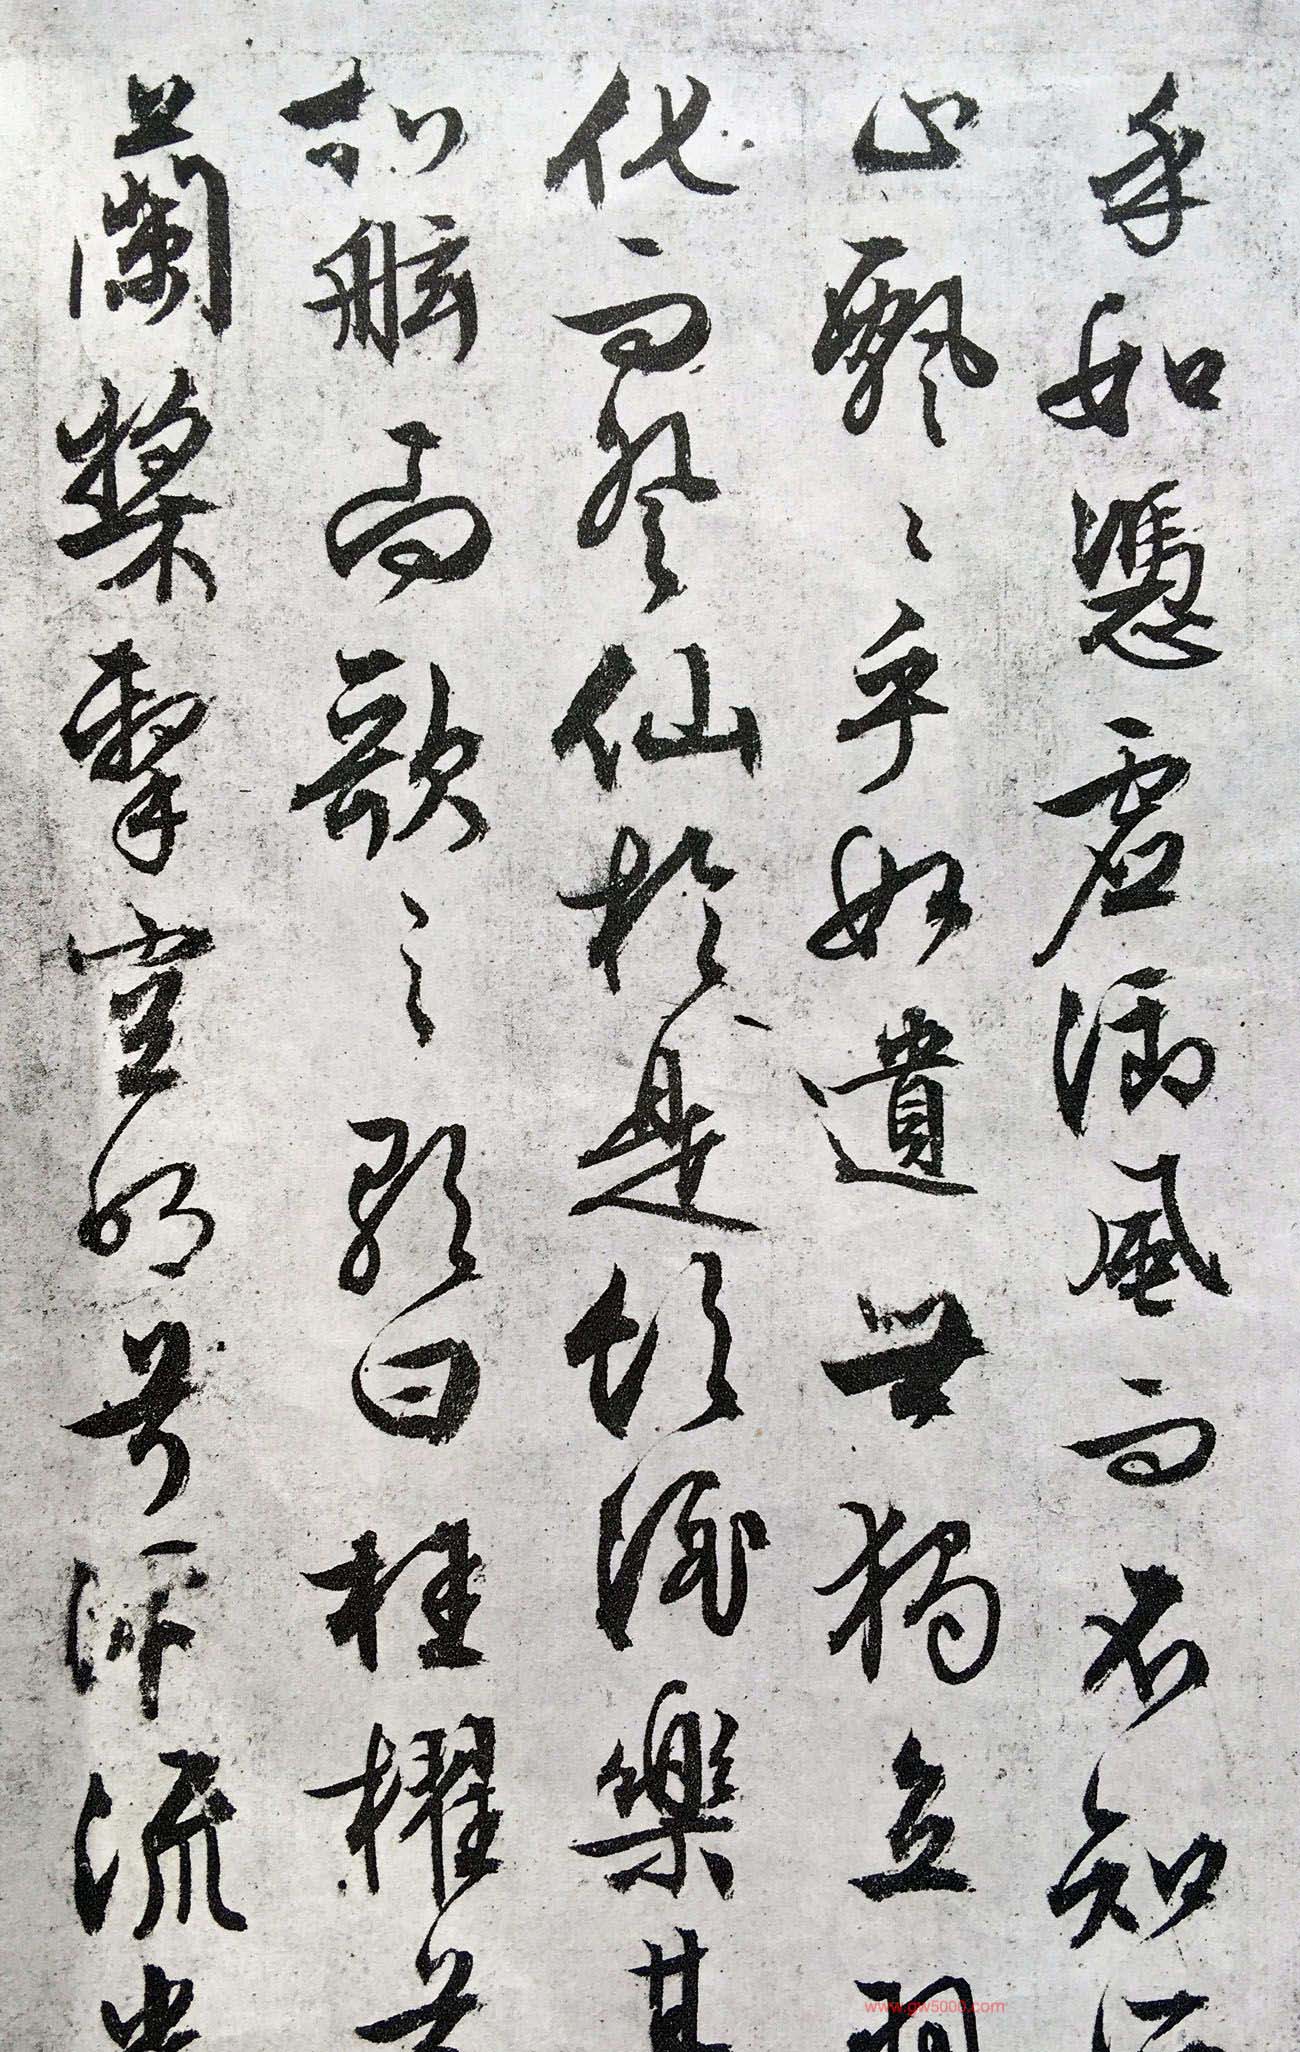 乎如憑虛御風而不知
止飄〻乎如遺世獨立羽
化而登仙於是飲酒樂甚
扣舷高歌之歌曰桂櫂兮
蘭槳擊空明兮泝流光
www.gw5000.com